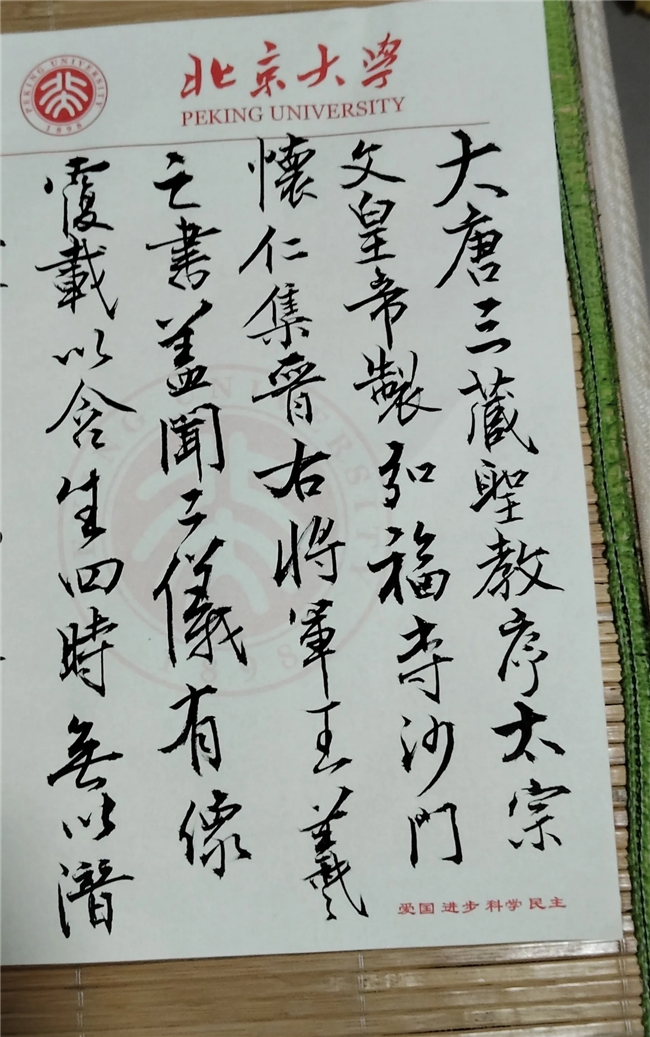 PEKING UNIVERSITY
1898
北京大学
PEKING UNIVERSITY
大唐三藏聖教序太宗
文皇帝製弘福寺沙門
懷仁集晉右將軍王羲
之書盖聞二儀有像
覆載以含生四時無以潛
爱国 进步 科学 民主